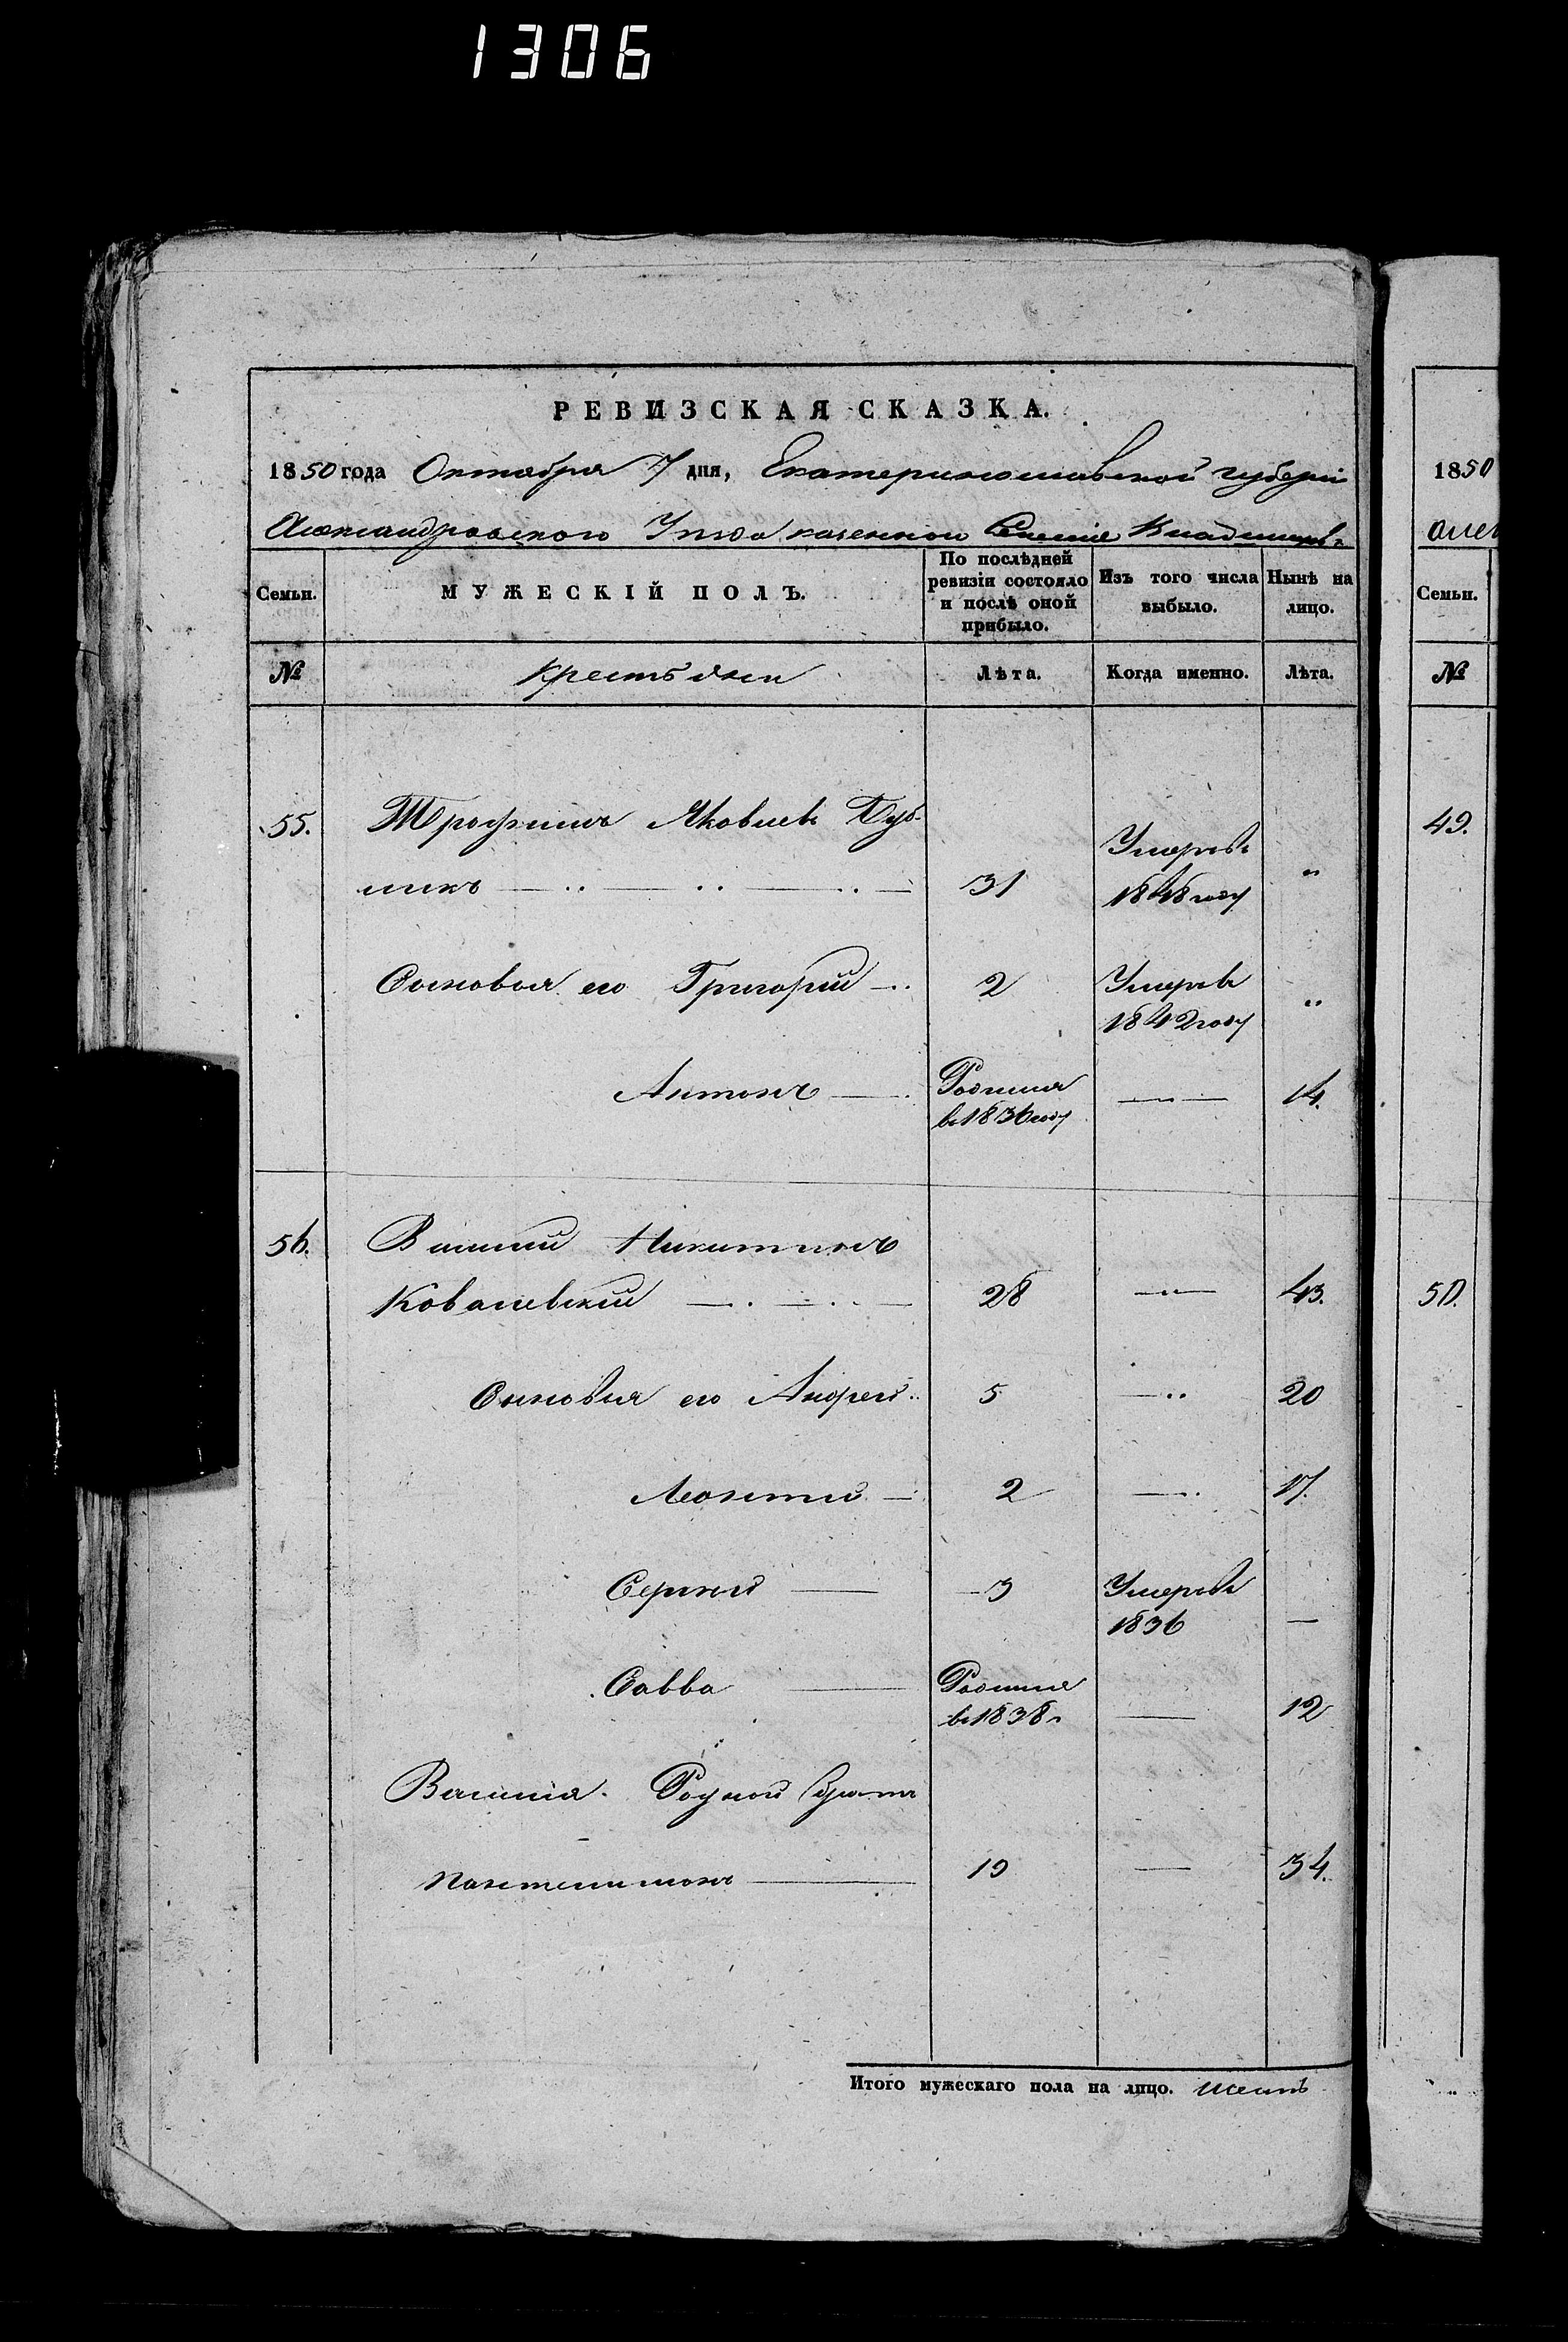 1306
РЕВИЗСКАЯ СКАЗКА.
1850 года Октября 7 дня, Екатеринославской губерніи
Александровского Уезда казенной Селеніе Владимировк
Семьи.
МУЖЕСКІЙ ПОЛЪ.
По послѣдней ревизіи состояло и послѣ оной прибыло.
Изъ того числа выбыло.
Нынѣ на лицо.
№
Крестьяни
Лѣта.
Когда именно.
Лѣта.
55. Трофимъ Яковлевъ Дуб-
никъ 31 Умеръ въ 1848 году "
Сыновья его Григорий 2 Умеръ въ 1842 году "
Антонъ Родился въ 1836 году 14.
56. Василий Никитинъ
Ковалевский 28 43.
Сыновья его Андрей 5 20
Леонтий 2 17.
Сергий 3 Умеръ въ 1836
Савва Родился въ 1838 г 12
Василия Родной братъ
Пантелимонъ 19 34.
Итого мужескаго пола на лицо. шесть
1850
Семьи.
№
49.
50.